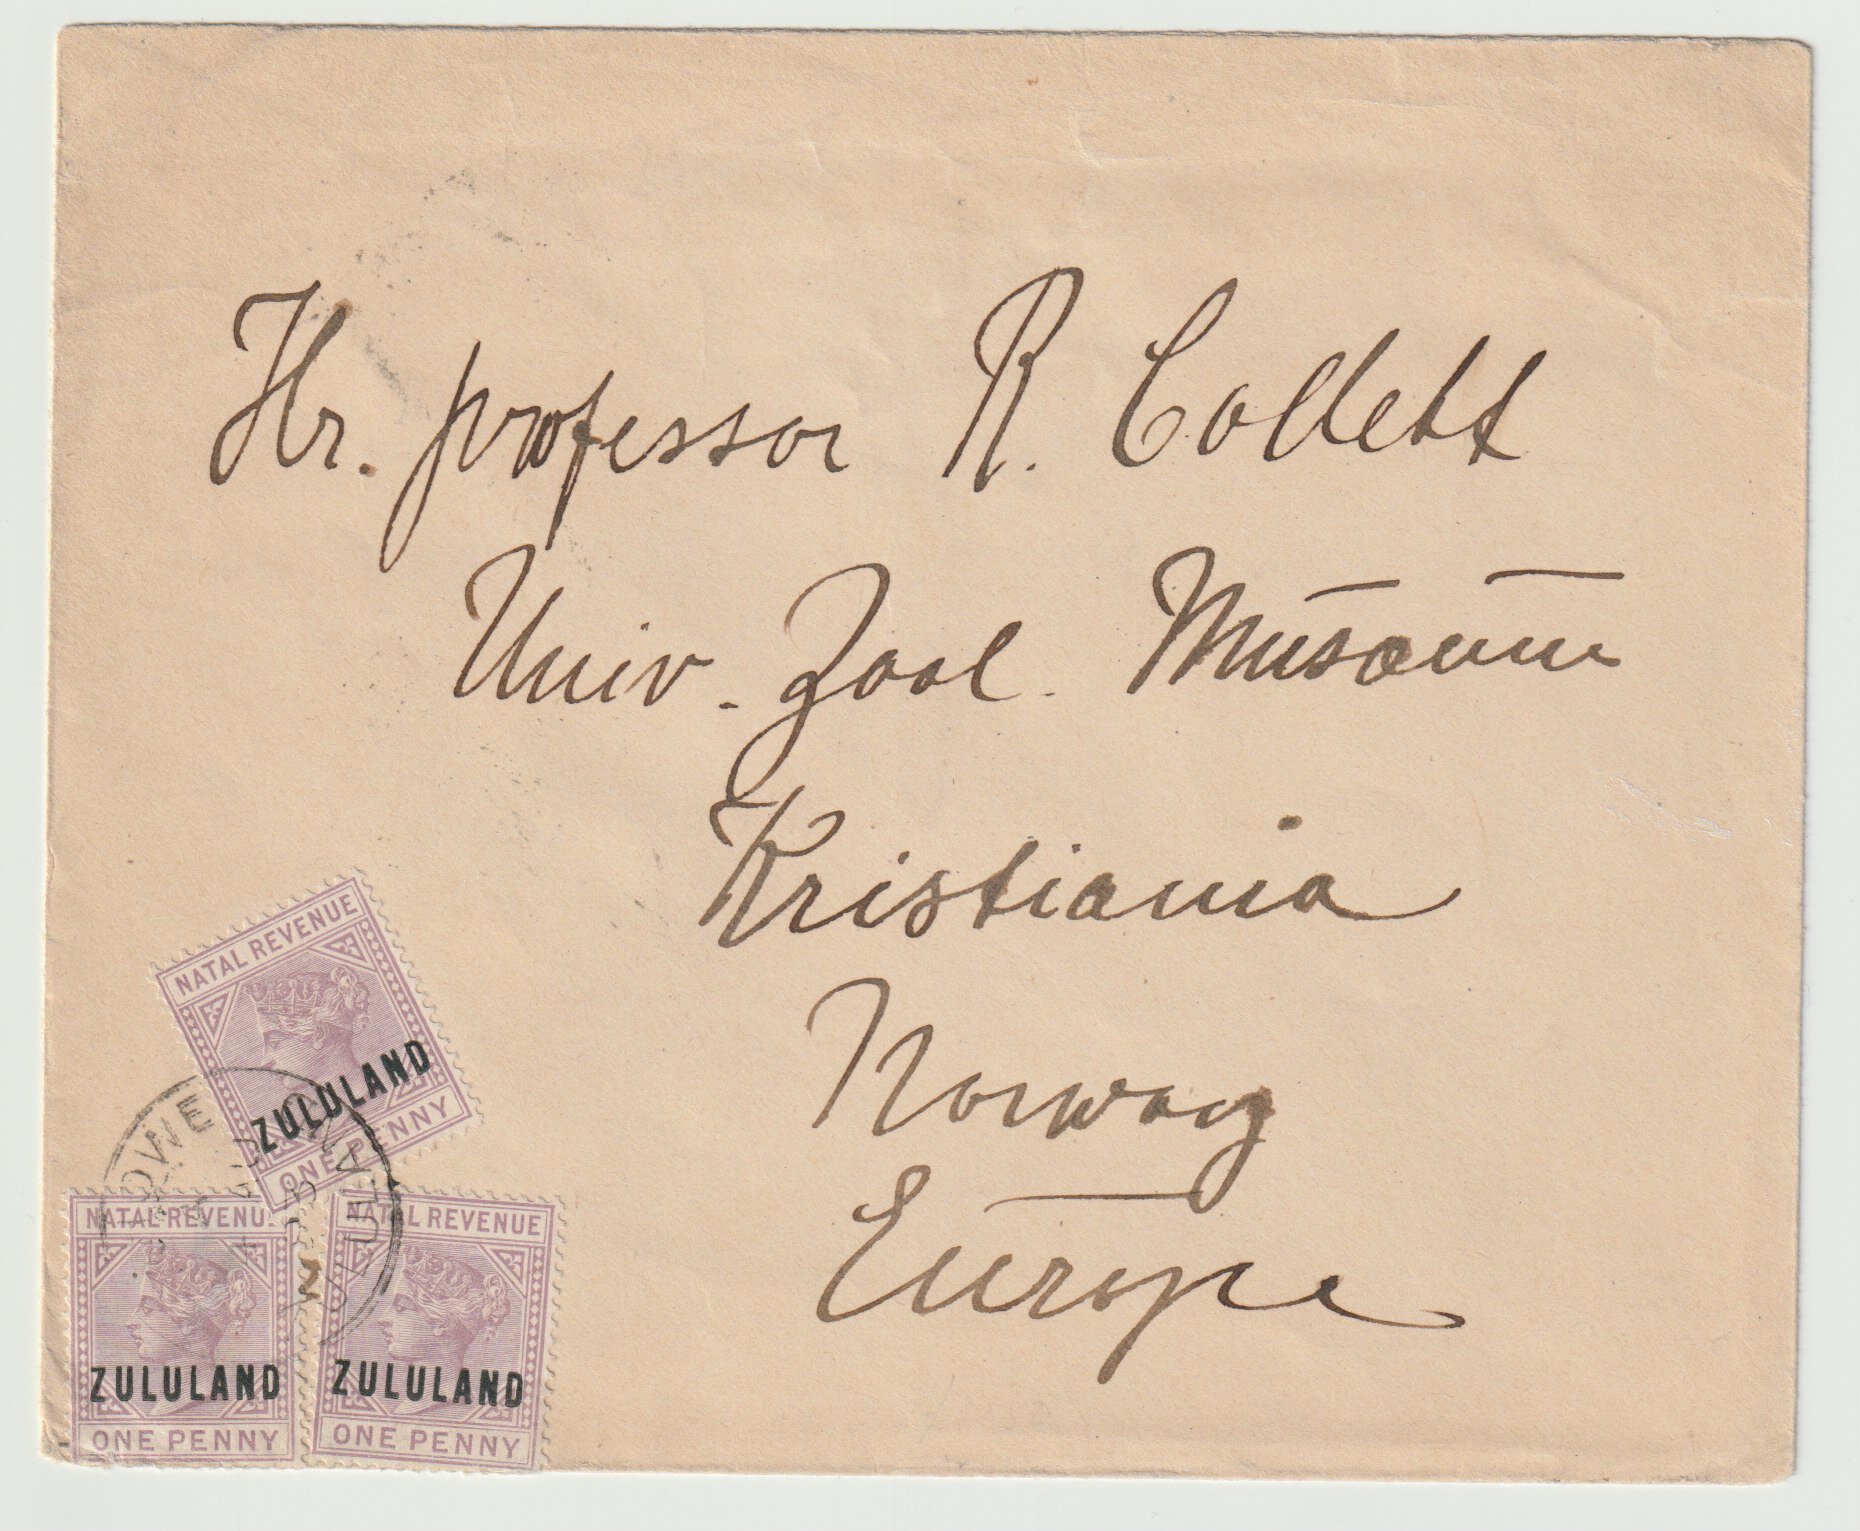 Hr. professor R. Collett
Univ. Zool. Musæum
Kristiania
Norway
Europe
NATAL REVENUE
ZULULAND
ONE PENNY
NATAL REVENUE
ZULULAND
ONE PENNY
NATAL REVENUE
ZULULAND
ONE PENNY